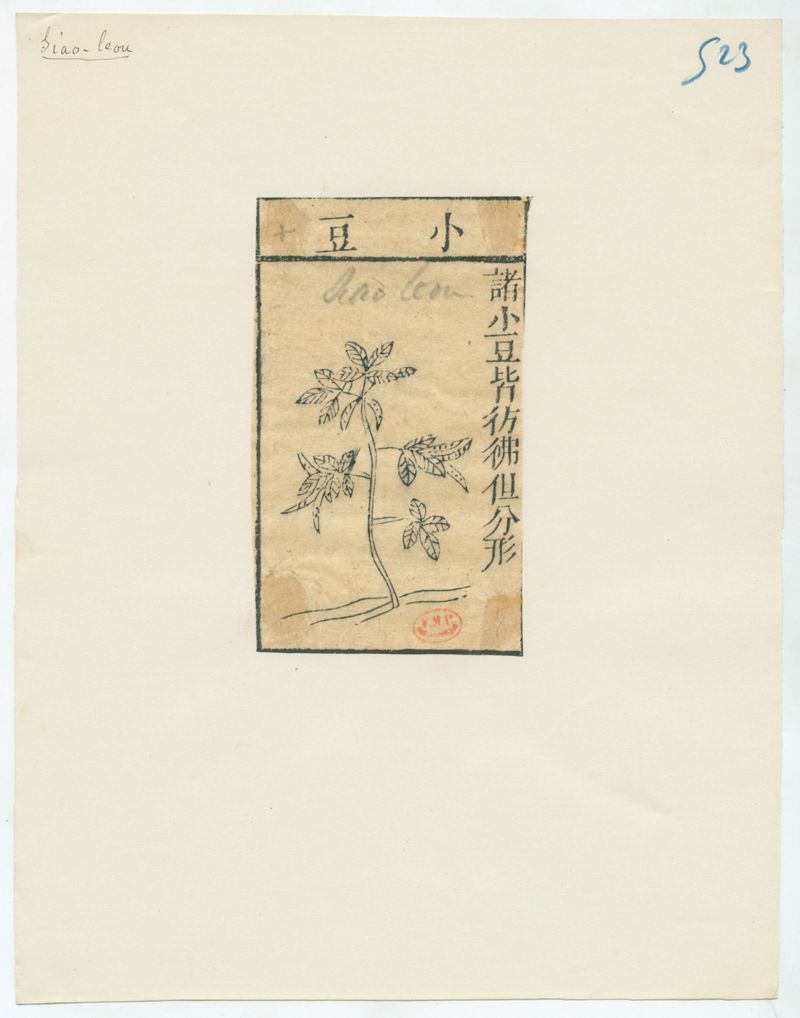 Siao-leou
523
小豆
siao leou
諸小豆皆彷彿但分形